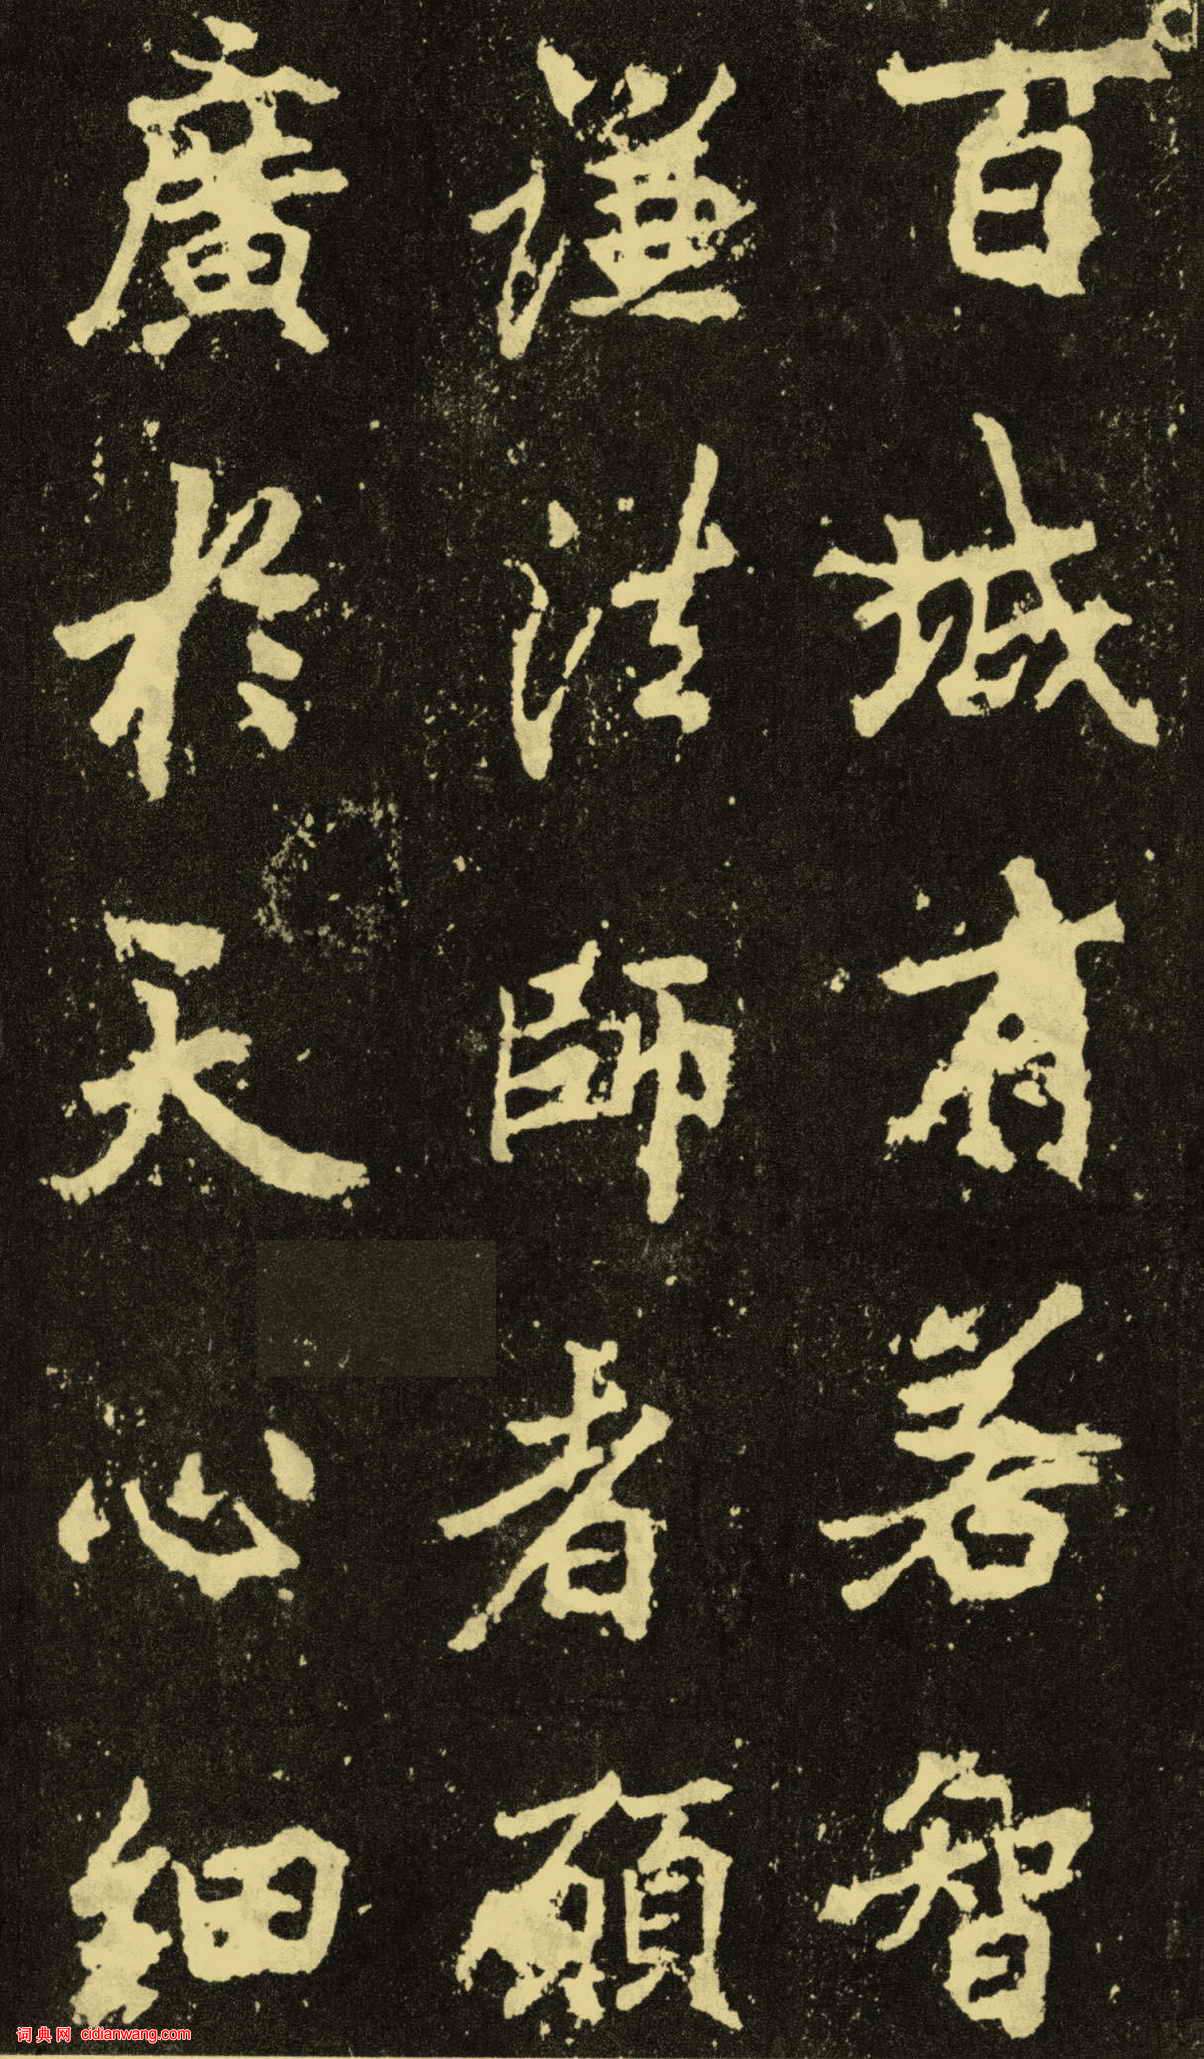 百城有若智
謹法師者願
廣於天心細
词典网 cidianwang.com